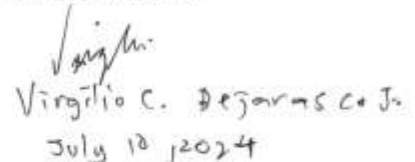 Virgilio C. Dejarasco Jr.
July , 2024